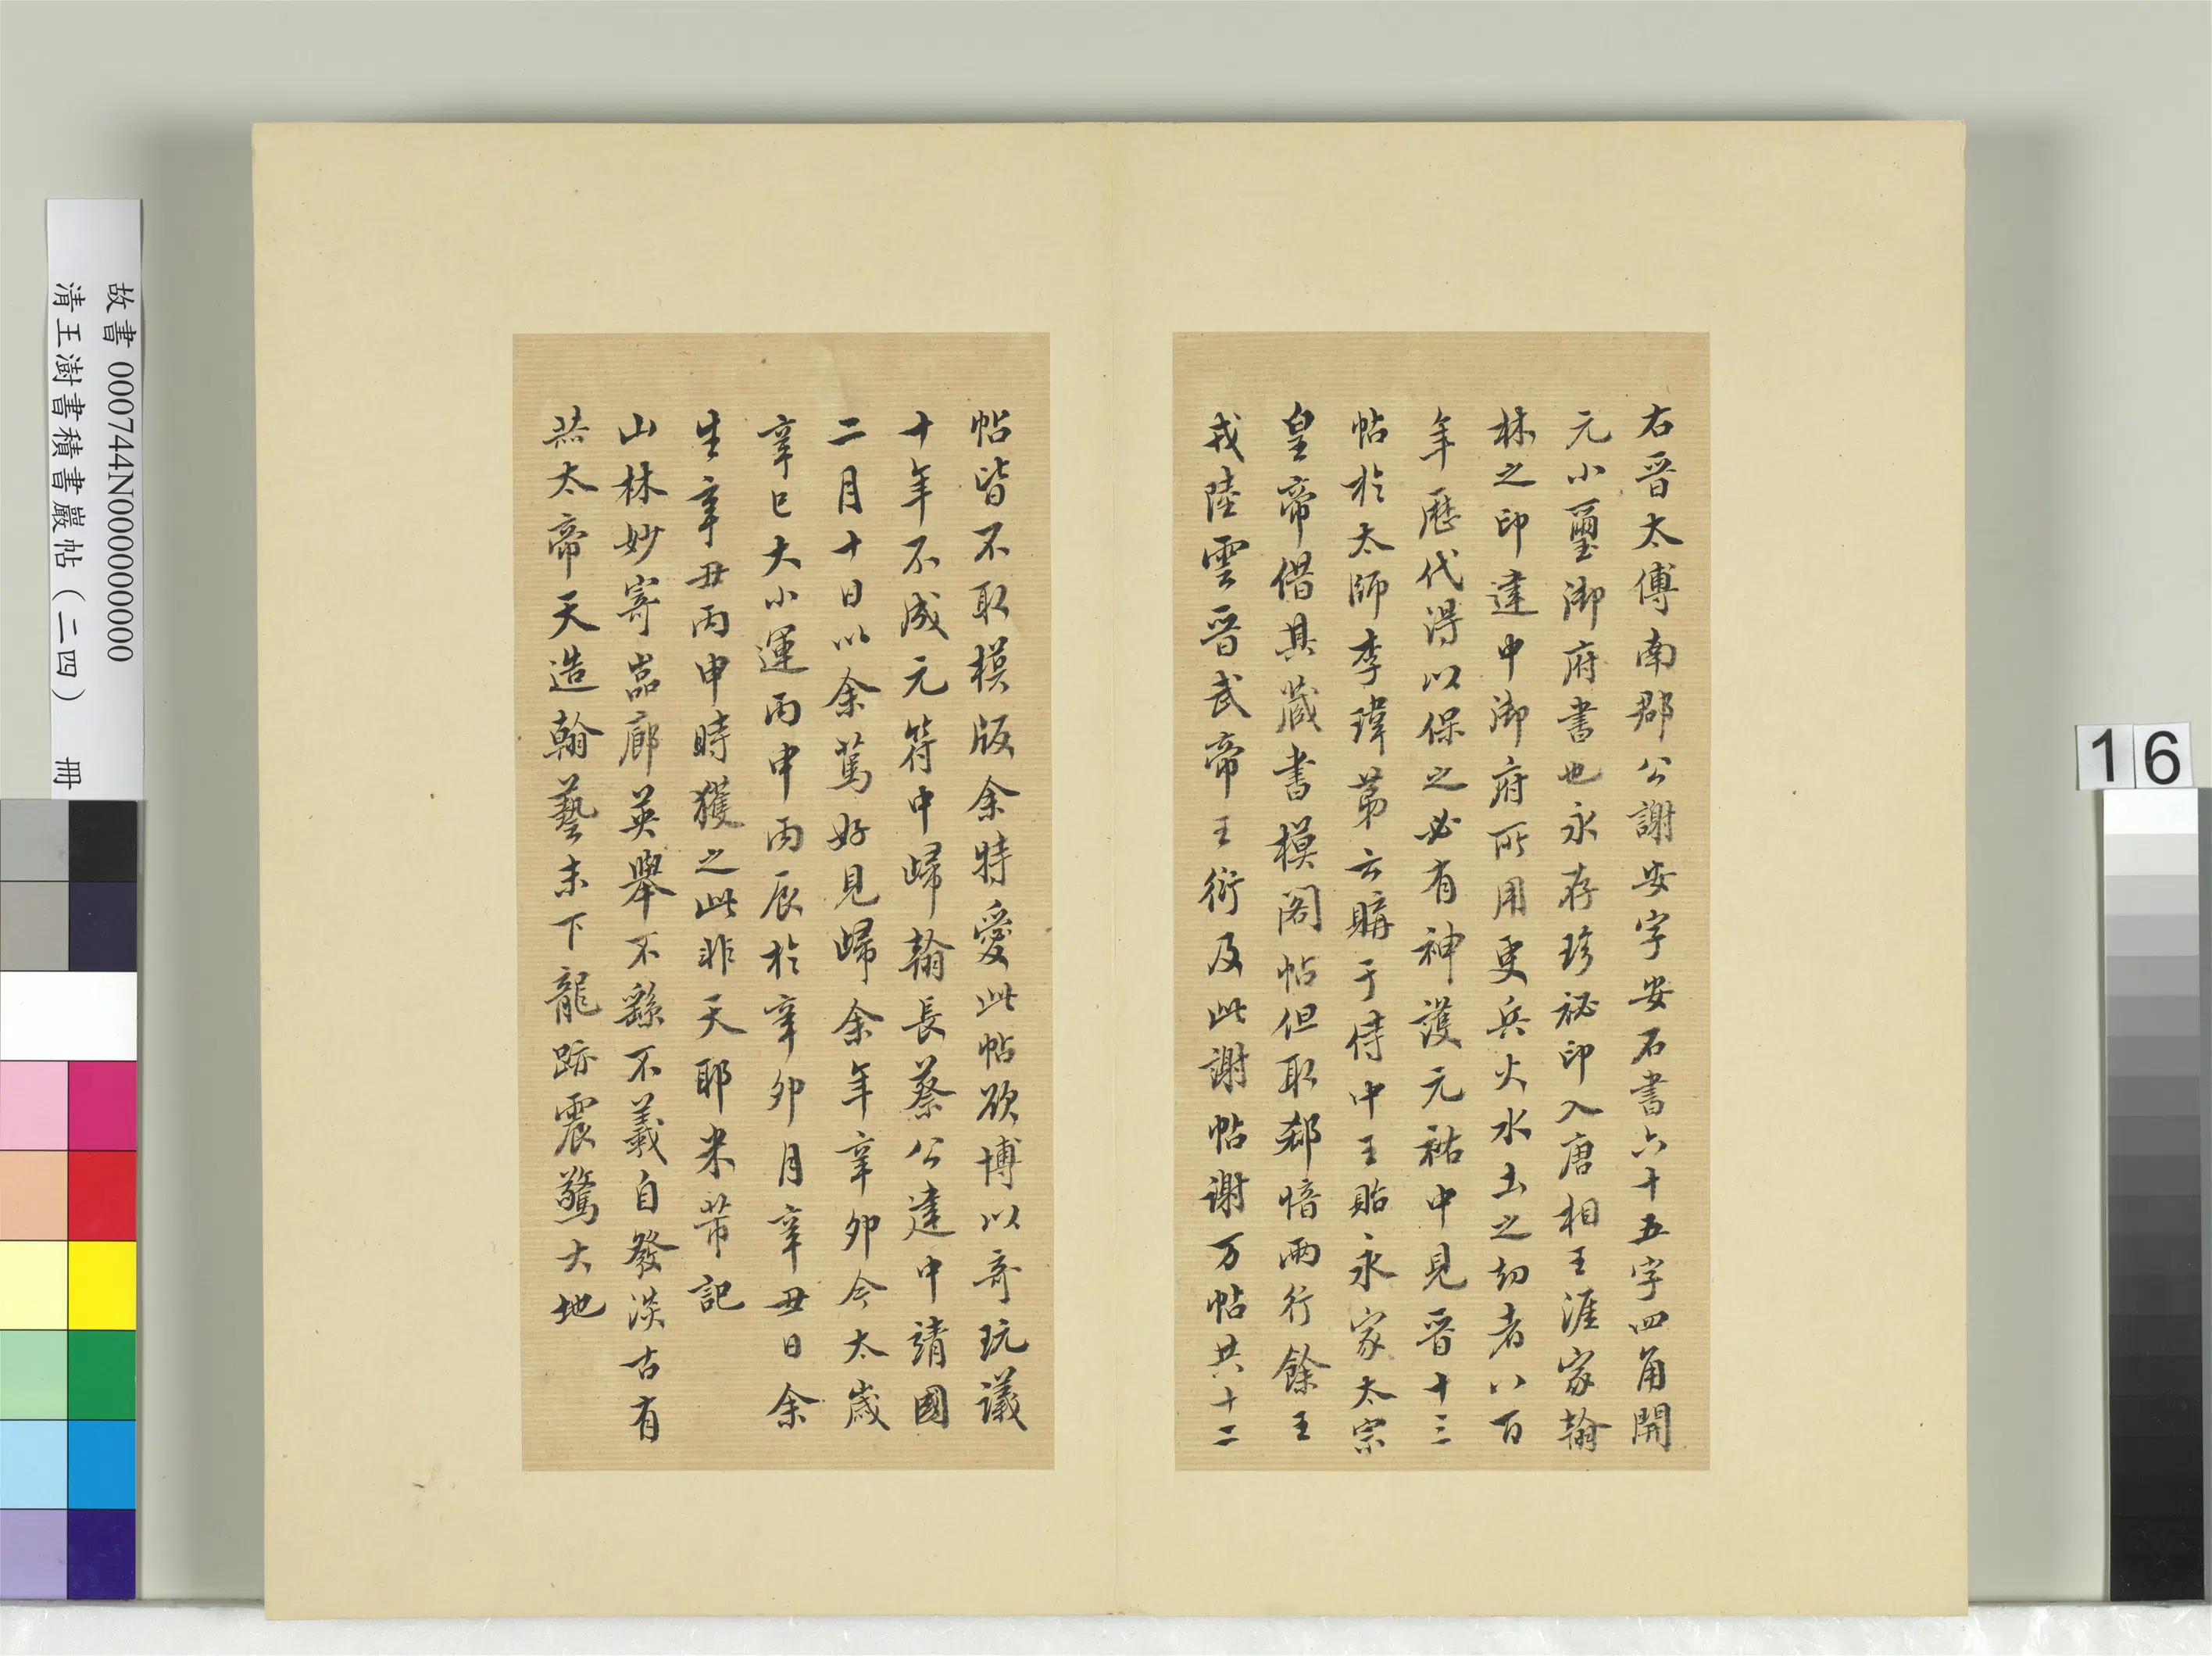 右晉太傅南郡公謝安字安石書六十五字四角開
元小璽御府書也永存珍祕印入唐相王涯家翰
林之印建中御府所用更兵火水土之刧者八百
年歷代得以保之必有神護元祐中見晉十三
帖於太師李瑋第云購于侍中王貽永家太宗
皇帝借其藏書模閣帖但取郗愔兩行餘王
戎陸雲晉武帝王衍及此謝帖謝万帖共十二
帖皆不取模版余特愛此帖欲博以奇玩議
十年不成元符中歸翰長蔡公建中靖國
二月十日以余篤好見歸余年辛卯今太歲
辛巳大小運丙申丙辰於辛卯月辛丑日余
生辛丑丙申時獲之此非天耶米芾記
山林妙寄嵓廊英舉不繇不羲自發淡古有
赫太帝天造翰藝末下龍跡震驚大地
故書000744N000000000
清王澍書積書巖帖(二四) 冊
16